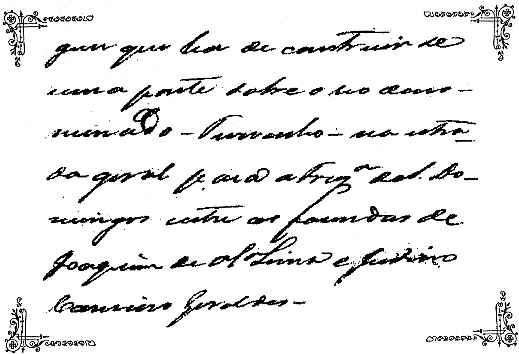 que ha de construir se
uma ponte sobre o rio deno-
minado - Turvinho - na estra
da geral para a freg.ª de S. Do-
mingos entre as fazendas de
Joaquim de Ol.ª Lima e
Geraldes -